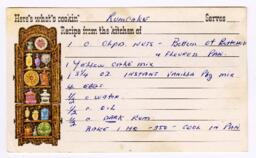 Here's what's cookin' Rumcake Serves
Recipe from the kitchen of
1 c Chpd. Nuts - Bottom of Buttered
& Floured Pan.
1 Yellow Cake mix
1 3/4 oz Instant Vanilla Pdg mix
4 eggs
1/2 c water
1/2 c oil
1/2 c Dark Rum
Bake 1 hr - 350 - Cool in Pan